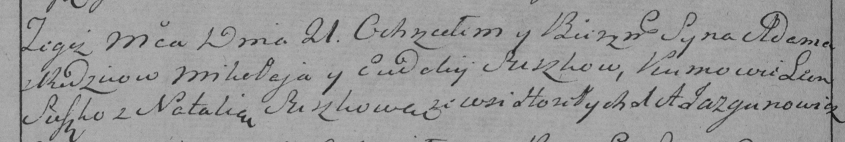 Tegoż Mca Dnia 21. Ochrzciłem y Bierzm Syna Adama
z Rodzicow Mikołaja y Eudokij Suszkow, Kumowie Leon
Suszko z Natalią Suszkową ze wsi Jazgunowicz